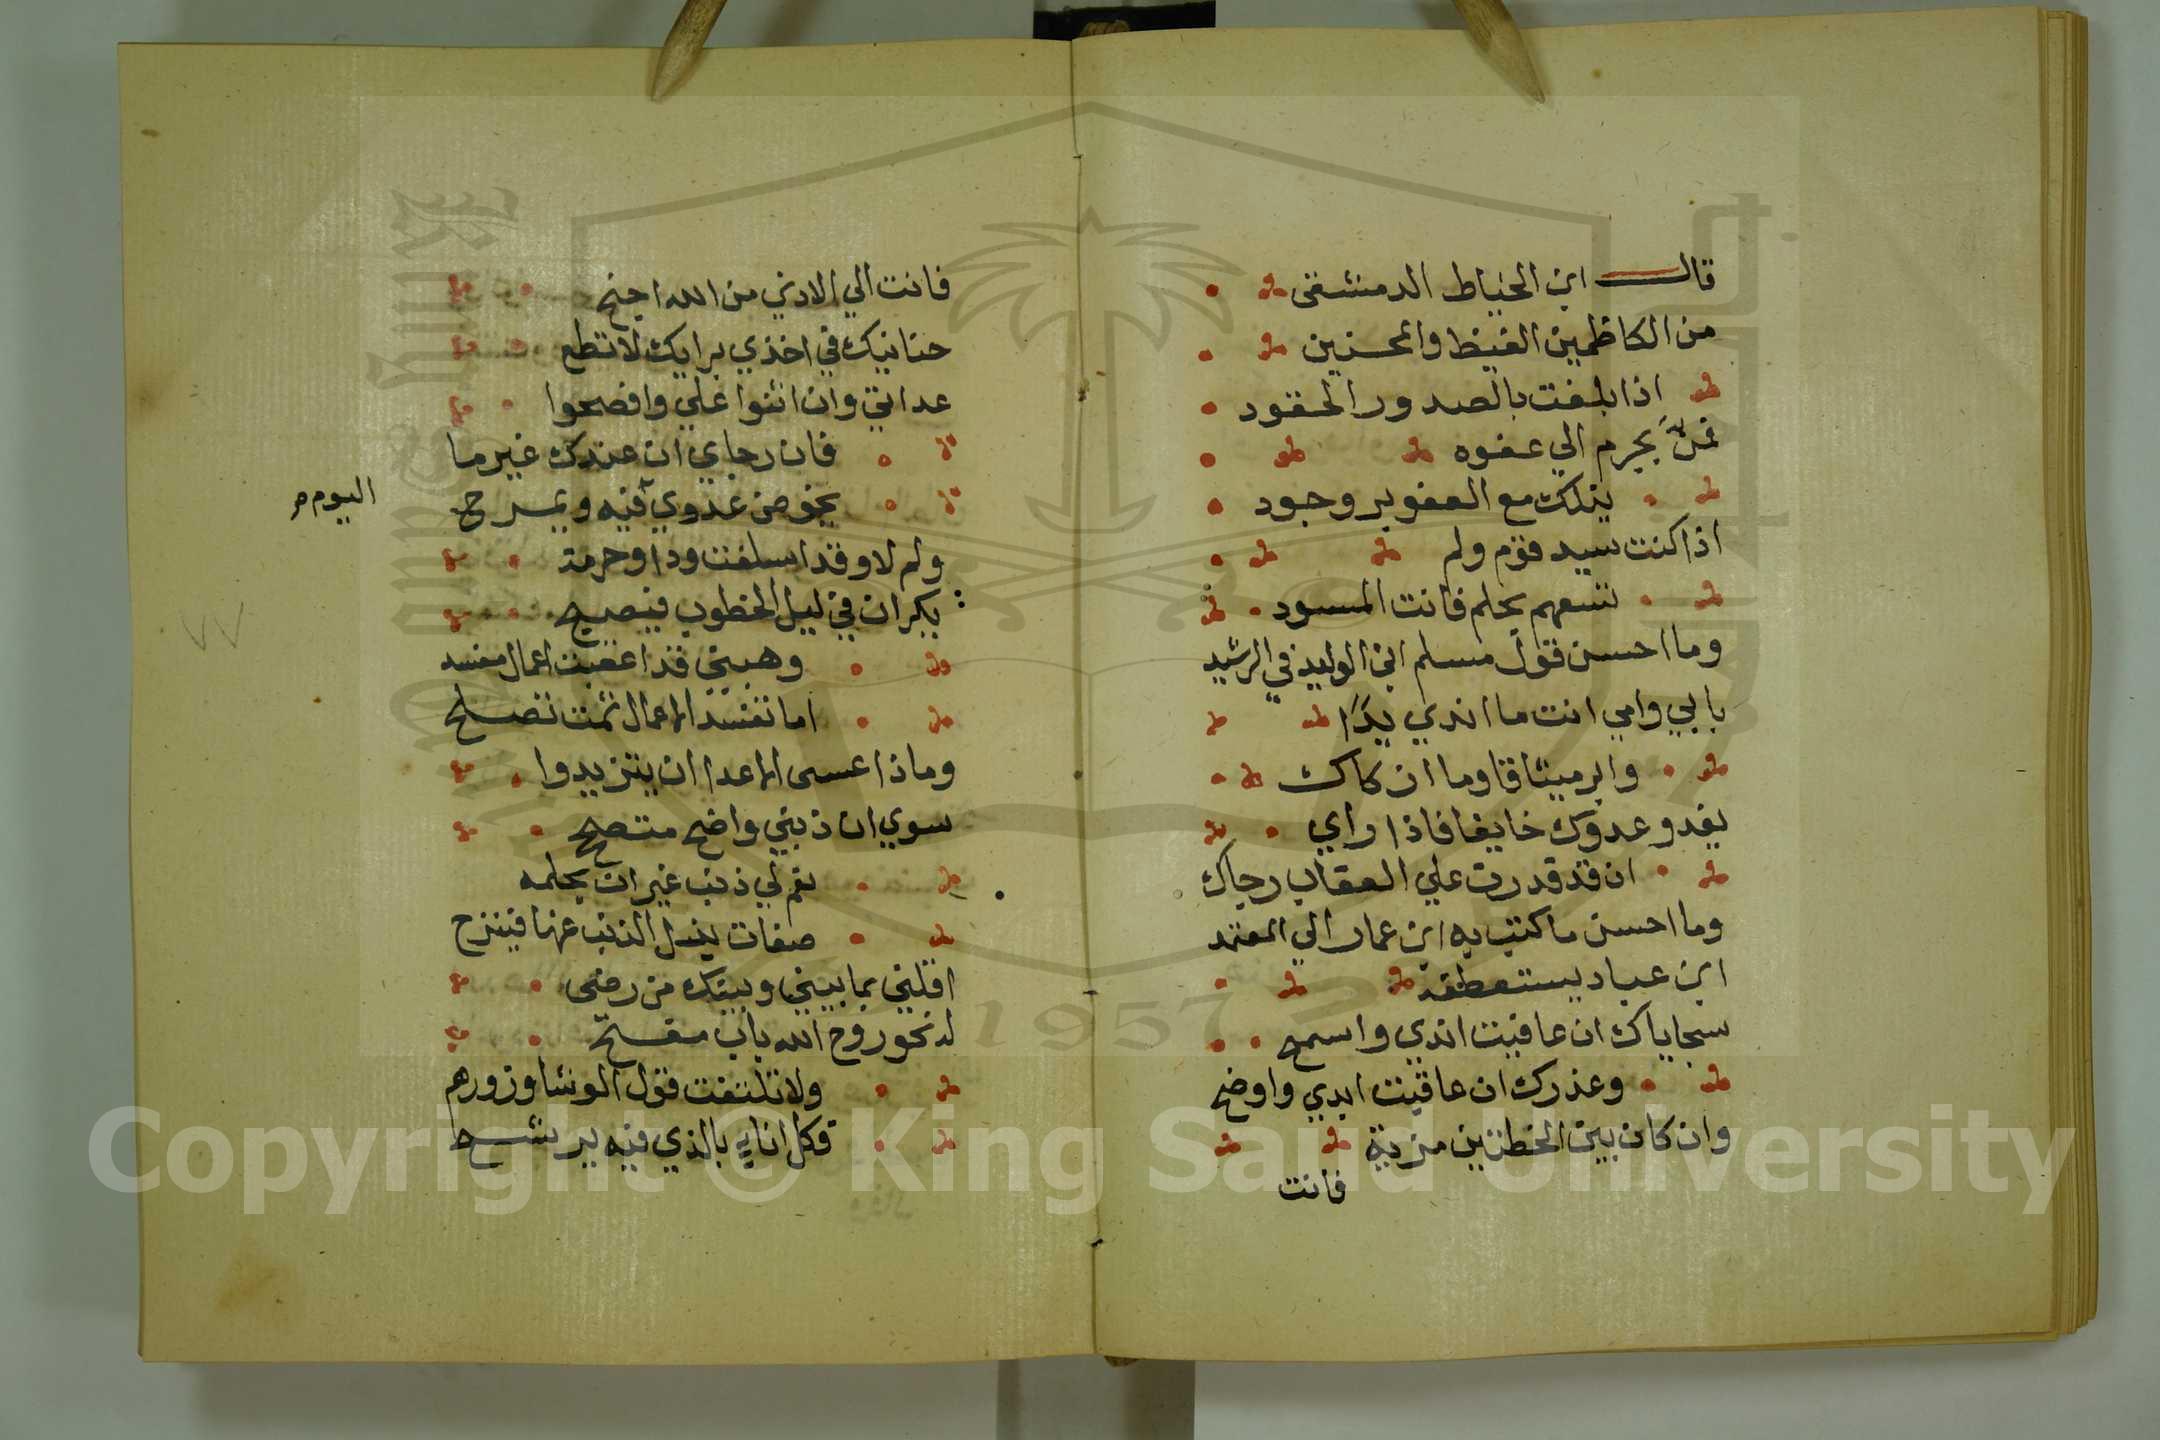 قال ابن الخياط الدمشقى
من الكاظمين الغيظ والمحسنين
اذا بلغت بالصدور الحقود
فمن بجرم الي عفوه
ينلك مع العفو بر وجود
اذا كنت سيد قوم ولم
تسعهم بحلم فانت المسود
وما احسن قول مسلم ابن الوليد في الرشيد
بابي وامي انت ما اندي يدًا
وابر ميثاقا وما ازكاك
يغدو عدوك خايفا فاذا راي
ان قد قدرت علي العقاب رجاك
وما احسن ما كتب به ابن عمار الي المعتمد
ابن عباد يستعطفه
سجاياك ان عافيت اندي واسمح
وعذرك ان عاقبت ابدي واوضح
وان كان بين الخطتين مزية
فانت
فانت الي الادني من الله اجنح
حنانيك في اخذي برايك لا تطع
عداتي وان اثنوا علي وافصحوا
فان رجاي ان عندك غير ما
يخوض عدوي فيه ويمرح
اليوم
ولم لا وقد اسلفت ودا وحرمة
يكران في ليل الخطوب فيصبح
وهبني قد اعقبت اعمال مفسد
اما تفسد الاعمال ثمت تصلح
وماذا عسى الاعدا ان يتزيدوا
سوي ان ذنبي واضح متصحح
نعم لي ذنب غير ان بحلمه
صفات يزل الذنب عنها فينزح
اقلني بما بيني وبينك من رضى
له نحو روح الله باب مفتح
ولا تلتفت قول الوشا وزورهم
فكل اناء بالذي فيه يرشح
Copyright © King Saud University
1957